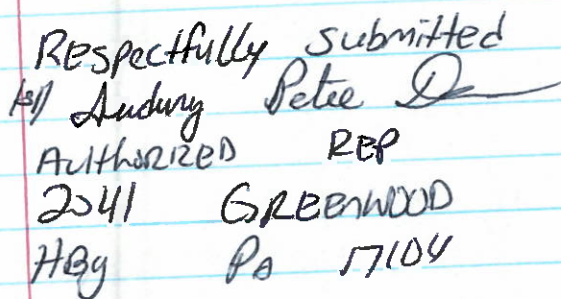 Respectfully submitted
/s/
Authorized REP
2041 GREENWOOD
HBg Pa 17104